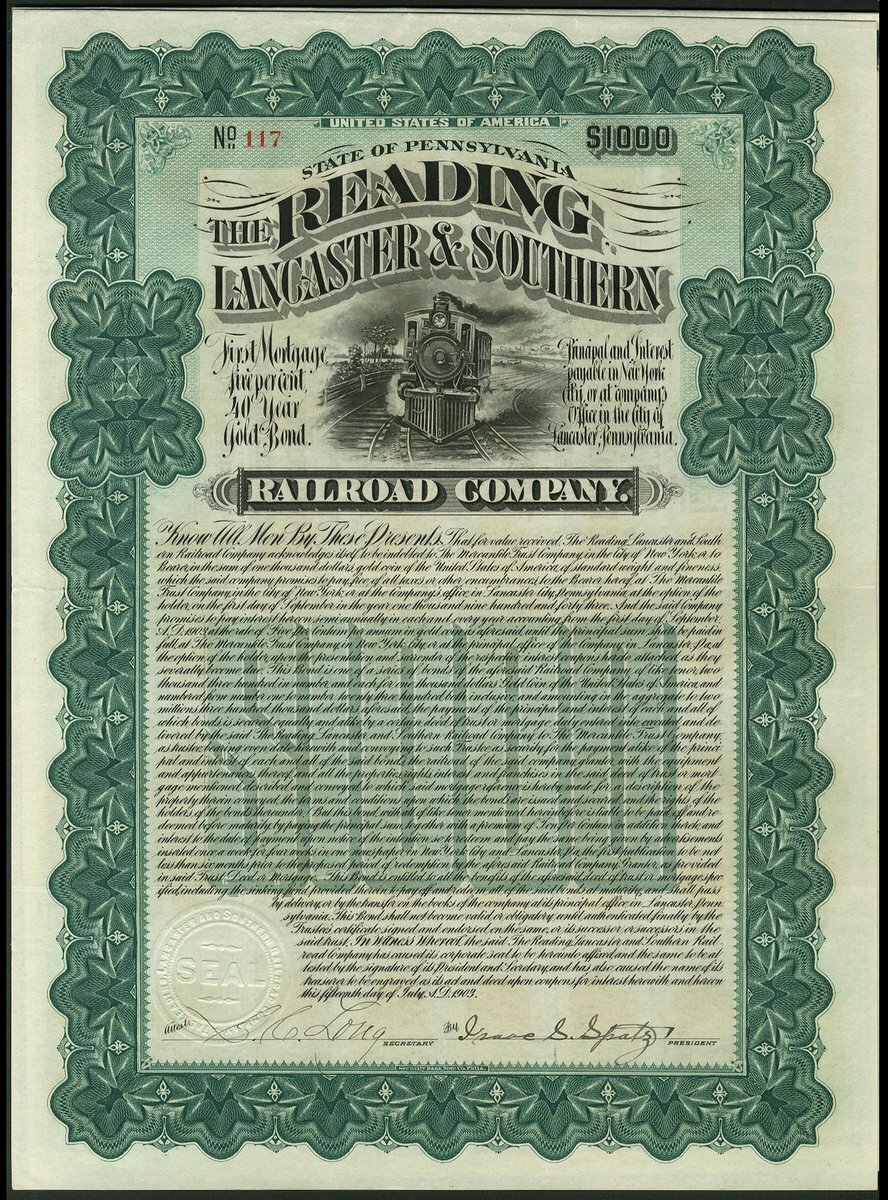 UNITED STATES OF AMERICA
No 117
$1000
STATE OF PENNSYLVANIA
THE READING
LANCASTER & SOUTHERN
First Mortgage
five per cent,
40 Year
Gold Bond.
Principal and Interest
payable in New York
City, or at Company's
Office in the City of
Lancaster, Pennsylvania.
RAILROAD COMPANY.
Know All Men By These Presents, That for value received, The Reading, Lancaster and South
ern Railroad Company acknowledges itself to be indebted to The Mercantile Trust Company, in the City of New York, or to
Bearer, in the sum of one thousand dollars, gold coin of the United States of America, of standard weight and fineness,
which the said company promises to pay, free of all taxes or other encumbrances, to the Bearer hereof, at The Mercantile
Trust Company, in the City of New York, or at the Company's office, in Lancaster City, Pennsylvania, at the option of the
holder, on the first day of September, in the year one thousand nine hundred and forty three. And the said Company
promises to pay interest hereon semi annually in each and every year accounting from the first day of September,
A.D. 1903, at the rate of Five Per Centum per annum in gold coin as aforesaid, until the principal sum shall be paid in
full, at The Mercantile Trust Company in New York City, or at the principal office of the Company in Lancaster, Pa., at
the option of the holder, upon the presentation and surrender of the respective interest coupons hereto attached, as they
severally become due. This Bond is one of a series of bonds of the aforesaid Railroad Company of like tenor, two
thousand three hundred in number, and each for one thousand dollars Gold Coin of the United States of America, and
numbered from number one to number twenty three hundred, both inclusive, and amounting in the aggregate to two
millions three hundred thousand dollars aforesaid, the payment of the principal and interest of each and all of
which bonds is secured equally and alike by a certain deed of trust or mortgage, duly entered into, executed and de-
livered by the said The Reading, Lancaster, and Southern Railroad Company, to The Mercantile Trust Company,
as trustee, bearing even date herewith and conveying to such trustee as security for the payment alike of the princi
pal and interest of each and all of the said bonds, the railroad of the said company, grants with the equipment
and appurtenances thereof, and all the properties, rights, interests and franchises in the said deed of trust or mort-
gage mentioned, described and conveyed, to which said mortgage reference is hereby made for a description of the
property therein conveyed, the terms and conditions upon which the bonds are issued and secured, and the rights of the
holders of the bonds hereunder. But this bond, with all of like tenor mentioned herein before is liable to be paid off and re-
deemed before maturity, by paying the principal sum, together with a premium of Ten Per Centum in addition thereto, and
interest to the date of payment upon notice of the intention so to redeem and pay the same being given by advertisements
inserted once a week for four weeks in one newspaper in New York City, and Lancaster, Pa., the first publication to be not
less than six months prior to the proposed period of redemption by the aforesaid Railroad Company, Grantor, as provided
in said Trust Deed or Mortgage. This Bond is entitled to all the benefits of the aforesaid deed of trust or mortgage spec
ified, including the sinking fund provided therein to pay off and redeem all of the said bonds at maturity, and shall pass
by delivery, or by the transfer on the books of the company at its principal office in Lancaster, Penn
sylvania. This Bond shall not become valid or obligatory until authenticated finally by the
Trustee's certificate signed and endorsed on the same, or its successor or successors in the
said trust. In Witness Whereof, the said The Reading, Lancaster, and Southern Rail
road Company, has caused its corporate seal to be hereunto affixed and the same to be at
tested by the signature of its President and Secretary, and has also caused the name of its
treasurer to be engraved as its act and deed upon coupons for interest herewith and hereon
this fifteenth day of July, A.D. 1903.
$1000
SEAL
Attest:
Long
SECRETARY
By Isaac S. Spatz
PRESIDENT
Security Bank Note Co. Phila.